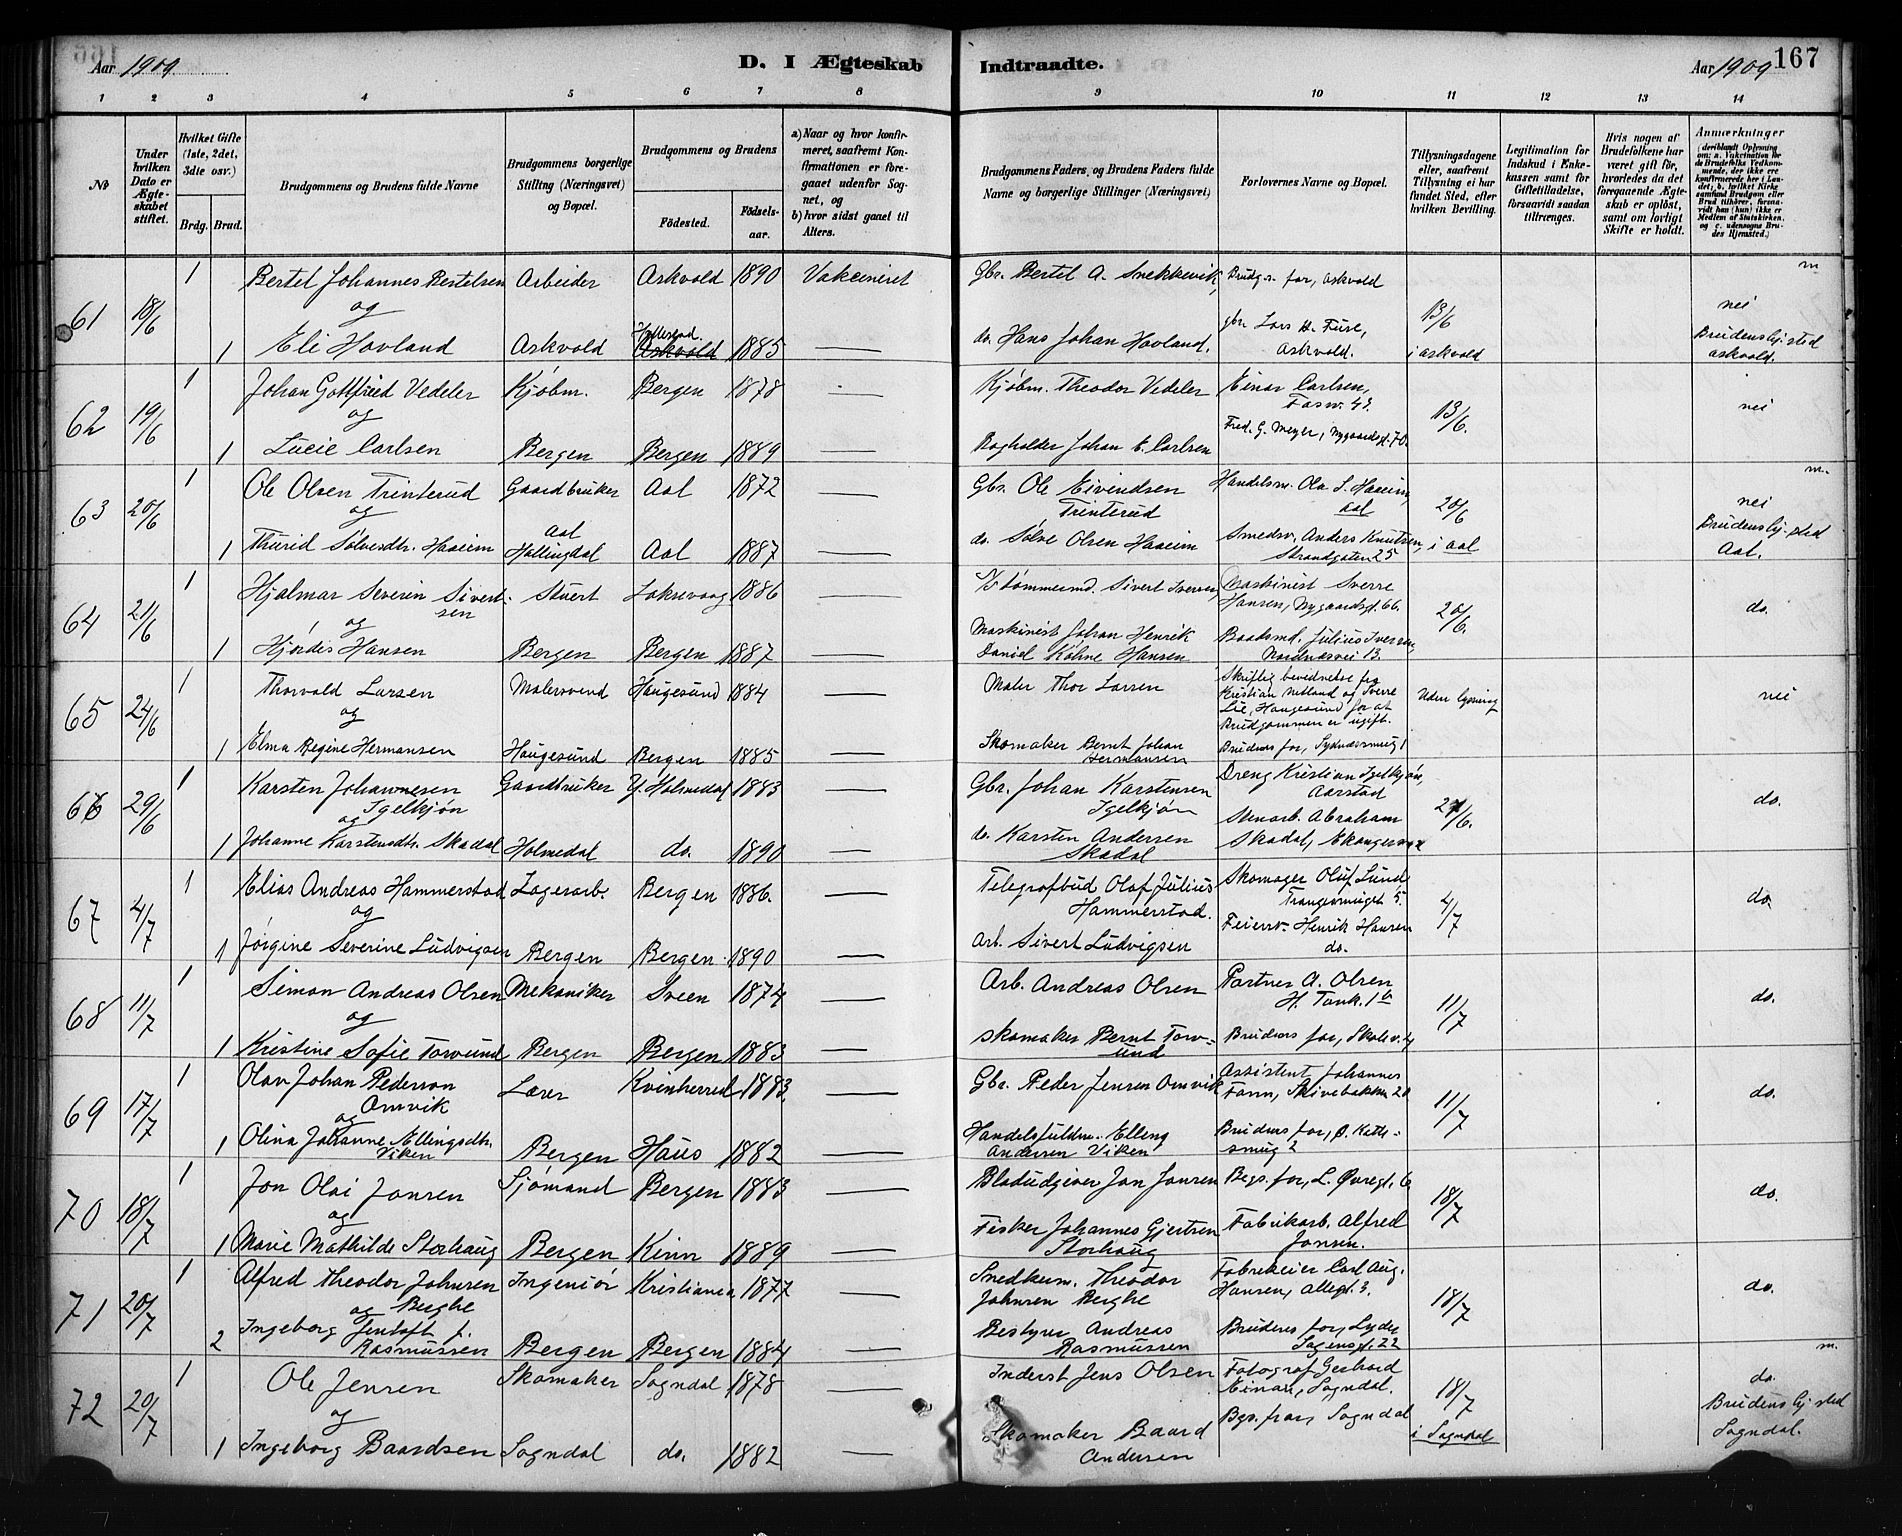 Aar 1909.
D. I Ægteskab
Indtraadte.
Aar 1909
167
1 2 3 4 5 6 7 8 9 10 11 12 13 14
No
Under hvilken Dato er Ægteskabet stiftet.
Hvilket Gifte (1ste, 2det, 3die osv.)
Brdg. Brud.
Brudgommens og Brudens fulde Navne
Brudgommens borgerlige Stilling (Næringsvei) og Bopæl.
Brudgommens og Brudens
Fødested.
Fødselsaar.
a) Naar og hvor konfirmeret, saafremt Konfirmationen er foregaaet udenfor Sognet, og
b) hvor sidst gaaet til Alters.
Brudgommens Faders, og Brudens Faders fulde Navne og borgerlige Stillinger (Næringsvei)
Forlovernes Navne og Bopæl.
Tillysningsdagene eller, saafremt Tillysning ei har fundet Sted, efter hvilken Bevilling.
Legitimation for Indskud i Enkekassen samt for Giftetilladelse, forsaavidt saadan tiltrænges.
Hvis nogen af Brudefolkene har været gift før, hvorledes da det foregaaende Ægteskab er opløst, samt om lovligt Skifte er holdt.
Anmærkninger (deriblandt Oplysning om: a. Vakcination for de Brudefolks Vedkommende, der ikke ere konfirmerede her i Landet; b. hvilket Kirkesamfund Brudgom eller Brud tilhører, forsaavidt han (hun) ikke er Medlem af Statskirken, og c. udensogns Brudes Hjemsted.)
61 18/6 1 Bertel Johannes Bertelsen Arbeider Askvold 1890 Vakcineret Gbr. Bertel A. Snekkevik, Brudg.s far, Askvold m
og
1 Eli Hovland Askvold Askvold 1885 — do. Hans Johan Hovland. gbr. Lars H. Fure, Askvold. 13/6 i Askvold nei Brudens hj.sted Askvold.
62 19/6 1 Johan Gottfried Vedeler Kjøbm. Bergen 1878 Kjøbm. Theodor Vedeler Einar Carlsen, nei
og
1 Lucie Carlsen Bergen Bergen 1889 — Johan E. Carlsen Fred. G. Meyer, Nygaardsgt. 70. 13/6.
63 20/6 1 Ole Olsen Trinterud Gaardbruker Aal 1872 — Gbr. Ole Eivendsen Trinterud Handelsm. Ola S. Haaeim, Aal m.
og
1 Thurid Sølvesdtr. Haaeim Aal Hallingdal Aal 1887 — do. Sølve Olsen Haaeim Smedsv. Anders Knutsen, Strandgaten 25 20/6 i Aal nei Brudens hj.sted Aal.
64 21/6 1 Hjalmar Severin Sivertsen Stuert 1886 — Tømmermd. Sivert Iversen, Maskinist Sverre Hansen, Nygaardsgt. 66. do.
og
1 Hjørdis Hansen Bergen Bergen 1887 — Maskinist Johan Henrik Daniel Köhne Hansen Baadsmd. Julius Iversen, Nordnæsvei 13. 20/6.
65 24/6 1 Thorvald Larsen Malersvend Haugesund 1884 — Maler Thor Larsen Skriftlig bevidnelse fra Kristian Netland og Sverre Lie, Haugesund for at Brudgommen er ugift. Uden lysning nei
og
1 Elma Regine Hermansen Haugesund Bergen 1885 — Skomaker Bernt Johan Hermansen Brudens far,
66 29/6 1 Karsten Johannesen Igelkjøn Gaardbruker Y. Holmedal 1883 — Gbr. Johan Karstensen Igelkjøn Dreng Kristian Igelkjøn, Aarstad do.
og
1 Johanne Karstensdtr. Skadal Holmedal do. 1890 — do. Karsten Andersen Skadal Stenarb. Abraham Skadal,
67 4/7 1 Elias Andreas Hammerstad Lagerarb. Bergen 1886. — Telegrafbud Olaf Julius Hammerstad. Skomager Oluf Lund, 5. do.
og
1 Jørgine Severine Ludvigsen Bergen Bergen 1890 — Arb. Sivert Ludvigsen Feiersv. Henrik Hansen do. 4/7
68 11/7 1 Simon Andreas Olsen Mekaniker Sveen 1874 — Arb. Andreas Olsen Partner A. Olsen H. Tank. 1 b do.
og
1 Kristine Sofie Torvund Bergen Bergen 1883 — Skomaker Bernt Torvund Brudens far, Skolev. 4 11/7
69 17/7 1 Olav Johan Pederson Omvik Lærer Kvinherred 1883. — Gbr. Peder Jensen Omvik Assistent Johannes Skivebakken 20 do.
og
1 Olina Johanne Ellingsdtr. Viken Bergen Haus 1882 — Handelsfuldm. Elling Andersen Viken Brudens far, Ø. 11/7
70 18/7 1 Jon Olai Jonsen Sjømand Bergen 1883 — Bladudgiver Jon Jonsen Bgs. far, L. Øvregt. 6 do.
og
1 Marie Mathilde Storhaug Bergen Kinn 1889 — Fisker Johannes Gjertsen Storhaug Fabrikarb. Alfred Jonsen. 18/7
71 20/7 1 Alfred Theodor Johnsen Berghe Ingeniør Kristiania 1877 — Snedkerm. Theodor Johnsen Berghe Fabrikeier Carl Aug. Hansen, Allegt. 3. do.
og
2 Ingeborg Jentoft f. Rasmussen Bergen Bergen 1884 — Bestyrer Andreas Rasmussen Brudens far, Lyder Sagensgt. 22 18/7 m.
72 20/7 1 Ole Jensen Skomaker Sogndal 1878 — Inderst Jens Olsen Fotograf Gerhard Einan, Sogndal. do.
og
1 Ingeborg Baardsen Sogndal do. 1882 — Skomaker Baard Andersen Bgs. far, Sogndal 18/7 i Sogndal Brudens hj.sted Sogndal.